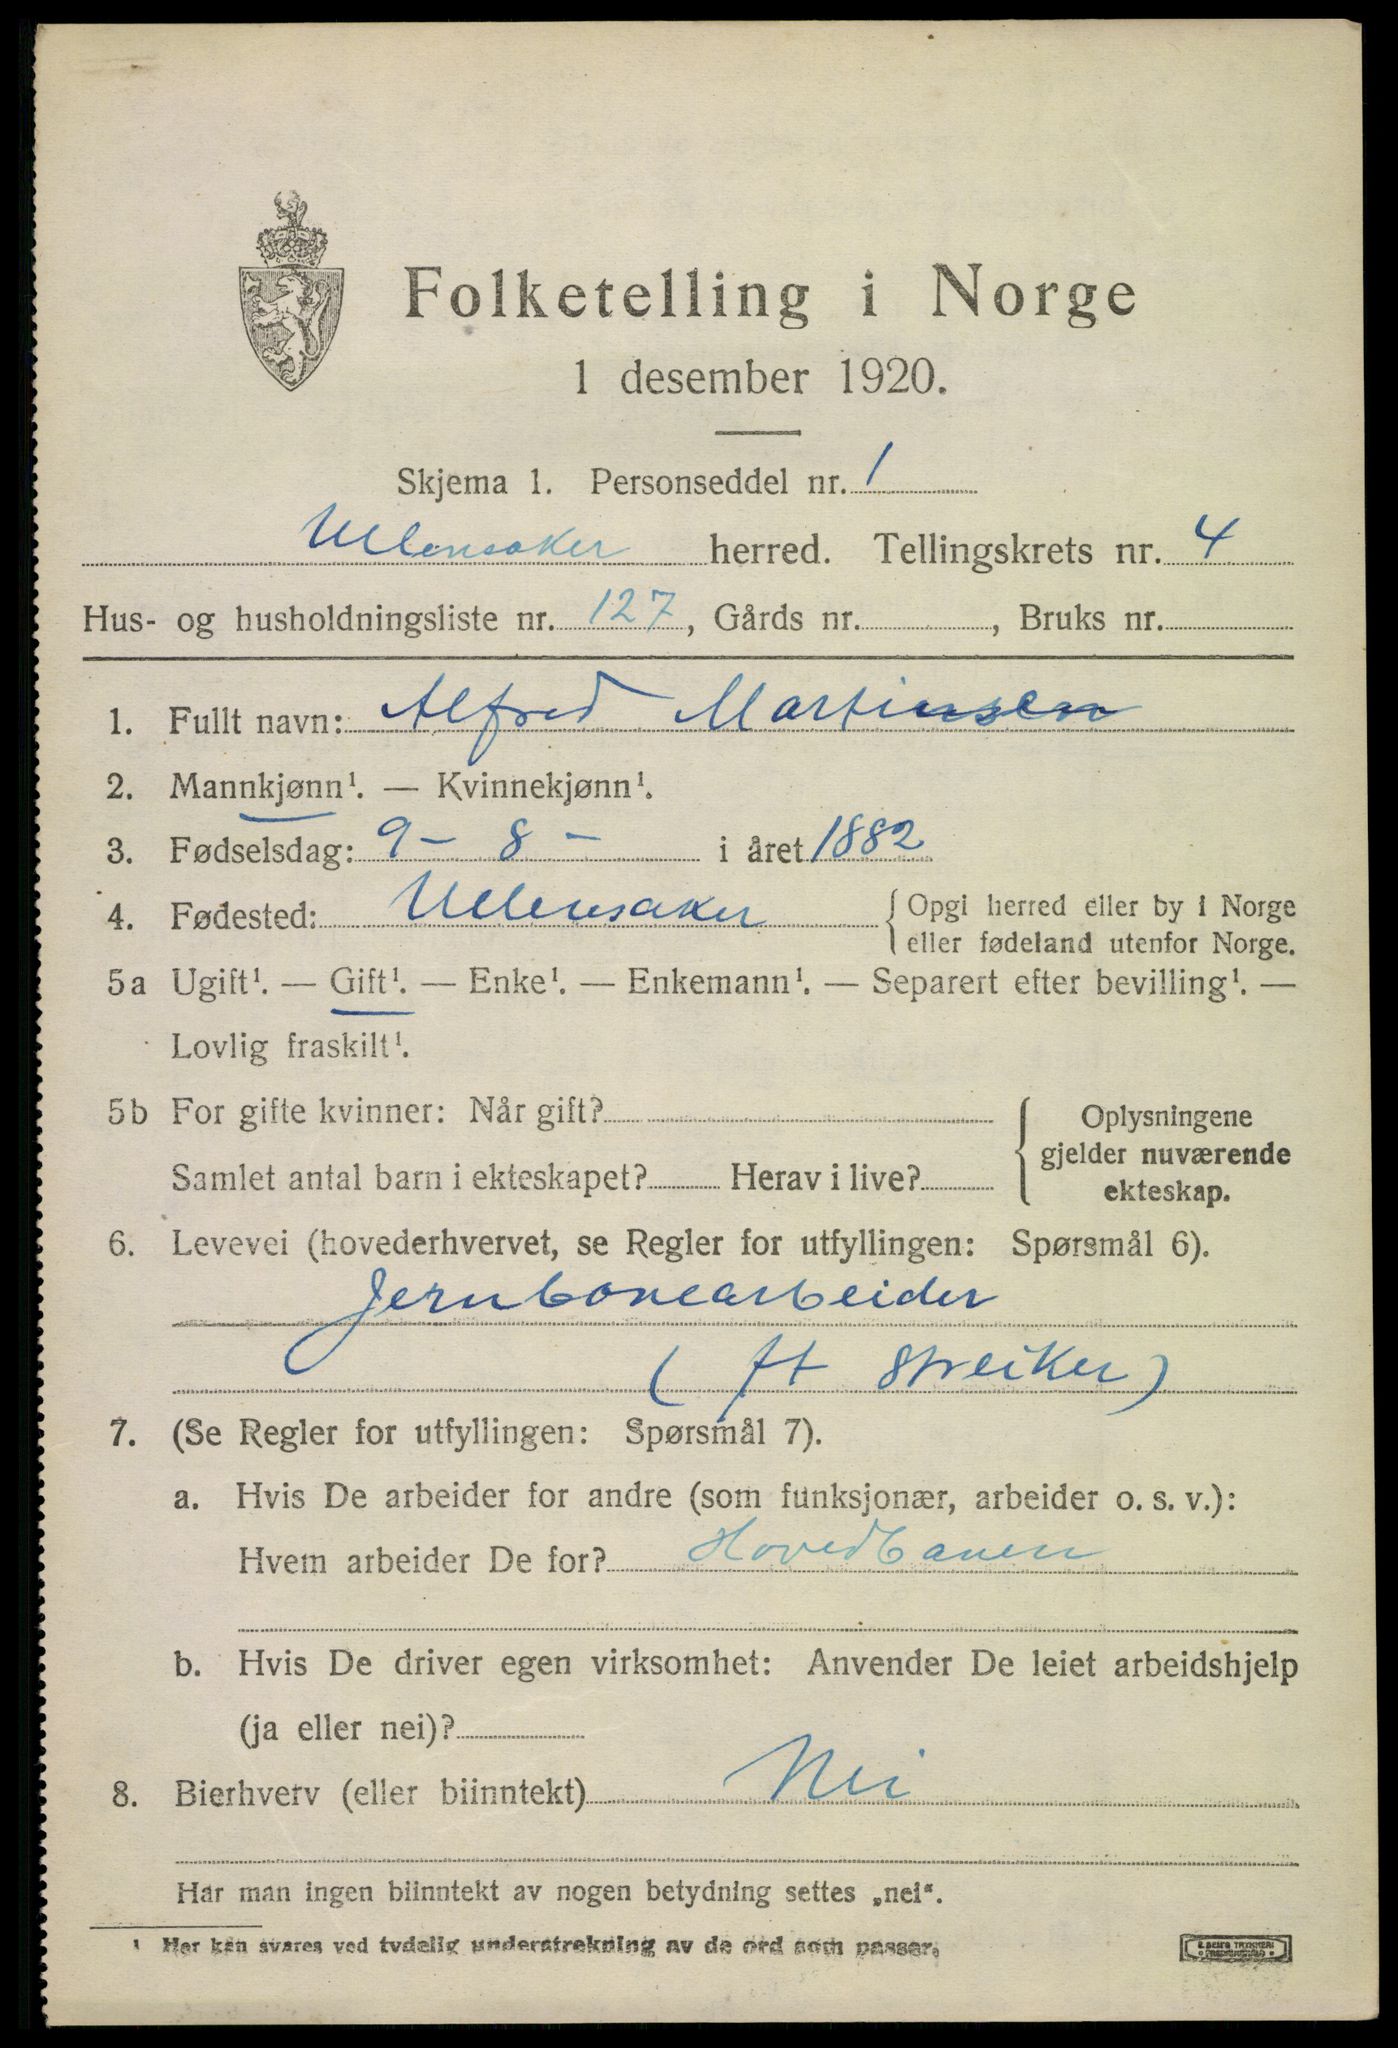 Folketelling i Norge
1 desember 1920.
Skjema 1. Personseddel nr. 1
Ullensaker herred. Tellingskrets nr. 4
Hus- og husholdningsliste nr. 127, Gårds nr. , Bruks nr.
1. Fullt navn: Alfred Martinsen
2. Mannkjønn¹. — Kvinnekjønn¹.
3. Fødselsdag: 9 - 8 - i året 1882
4. Fødested: Ullensaker { Opgi herred eller by i Norge
eller fødeland utenfor Norge.
5a Ugift¹. — Gift¹. — Enke¹. — Enkemann¹. — Separert efter bevilling¹. —
Lovlig fraskilt¹.
5b For gifte kvinner: Når gift? { Oplysningene
gjelder nuværende
Samlet antal barn i ekteskapet? Herav i live? ekteskap.
6. Levevei (hovederhvervet, se Regler for utfyllingen: Spørsmål 6).
Jernbanearbeider
( ft streiker)
7. (Se Regler for utfyllingen: Spørsmål 7).
a. Hvis De arbeider for andre (som funksjonær, arbeider o. s. v.):
Hvem arbeider De for? Hovedbanen
b. Hvis De driver egen virksomhet: Anvender De leiet arbeidshjelp
(ja eller nei)?
8. Bierhverv (eller biinntekt) Nei
Har man ingen biinntekt av nogen betydning settes „nei“.
¹ Her kan svares ved tydelig understrekning av de ord som passer.